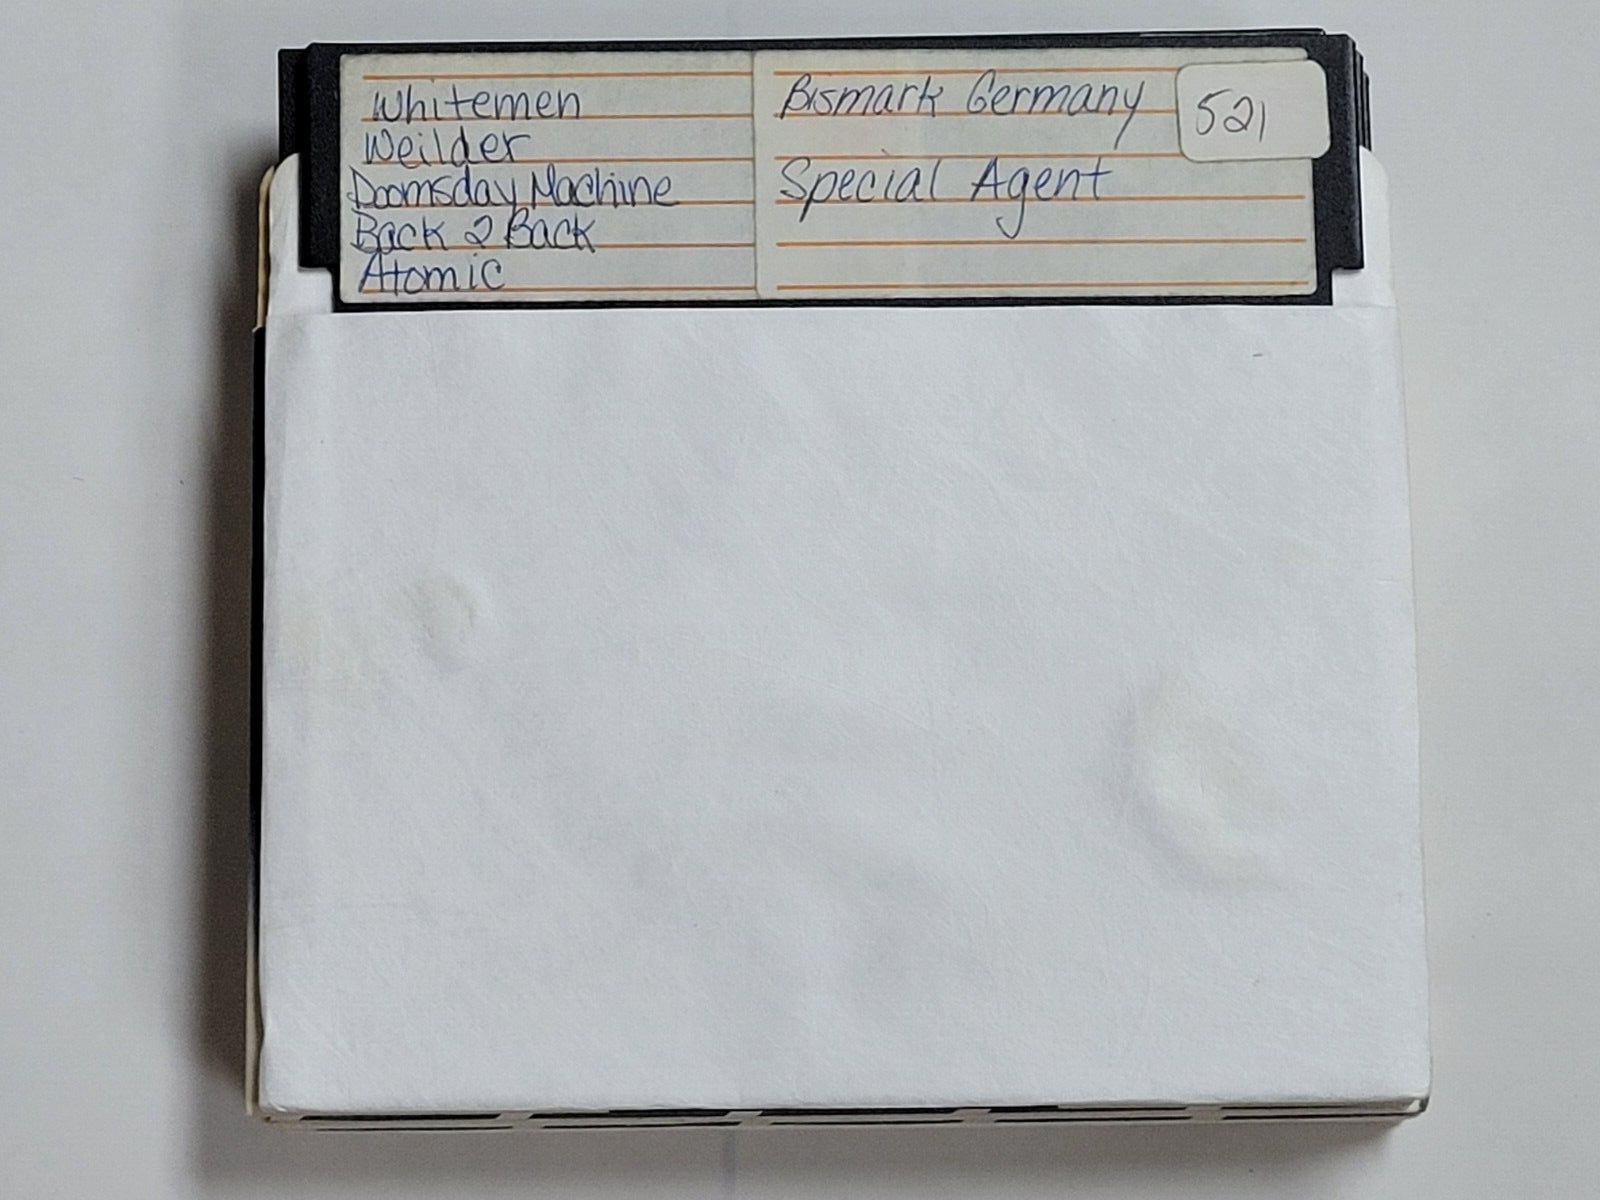 Whitemen
Weilder
Doomsday Machine
Back 2 Back
Atomic
Bismark Germany
Special Agent
521